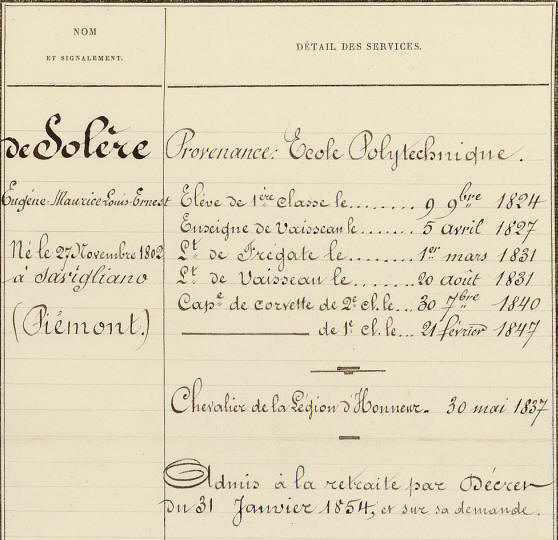 NOM
ET SIGNALEMENT.
DÉTAIL DES SERVICES.
de Solère
Provenance: Ecole Polytechnique.
Eugène-Maurice-Louis-Ernest
Elève de 1ère classe le........ 9 9bre 1824
Enseigne de Vaisseau le....... 5 avril 1827
Né le 27 Novembre 1802
Lt. de Frégate le.......... 1er mars 1831
à Savigliano
Lt. de Vaisseau le........ 20 août 1831
Cape. de corvette de 2e cl. le... 30 7bre 1840
(Piémont.)
de 1e cl. le... 21 février 1847
Chevalier de la Légion d'Honneur. 30 mai 1837
Admis à la retraite par Décret
du 31 Janvier 1854, et sur sa demande.